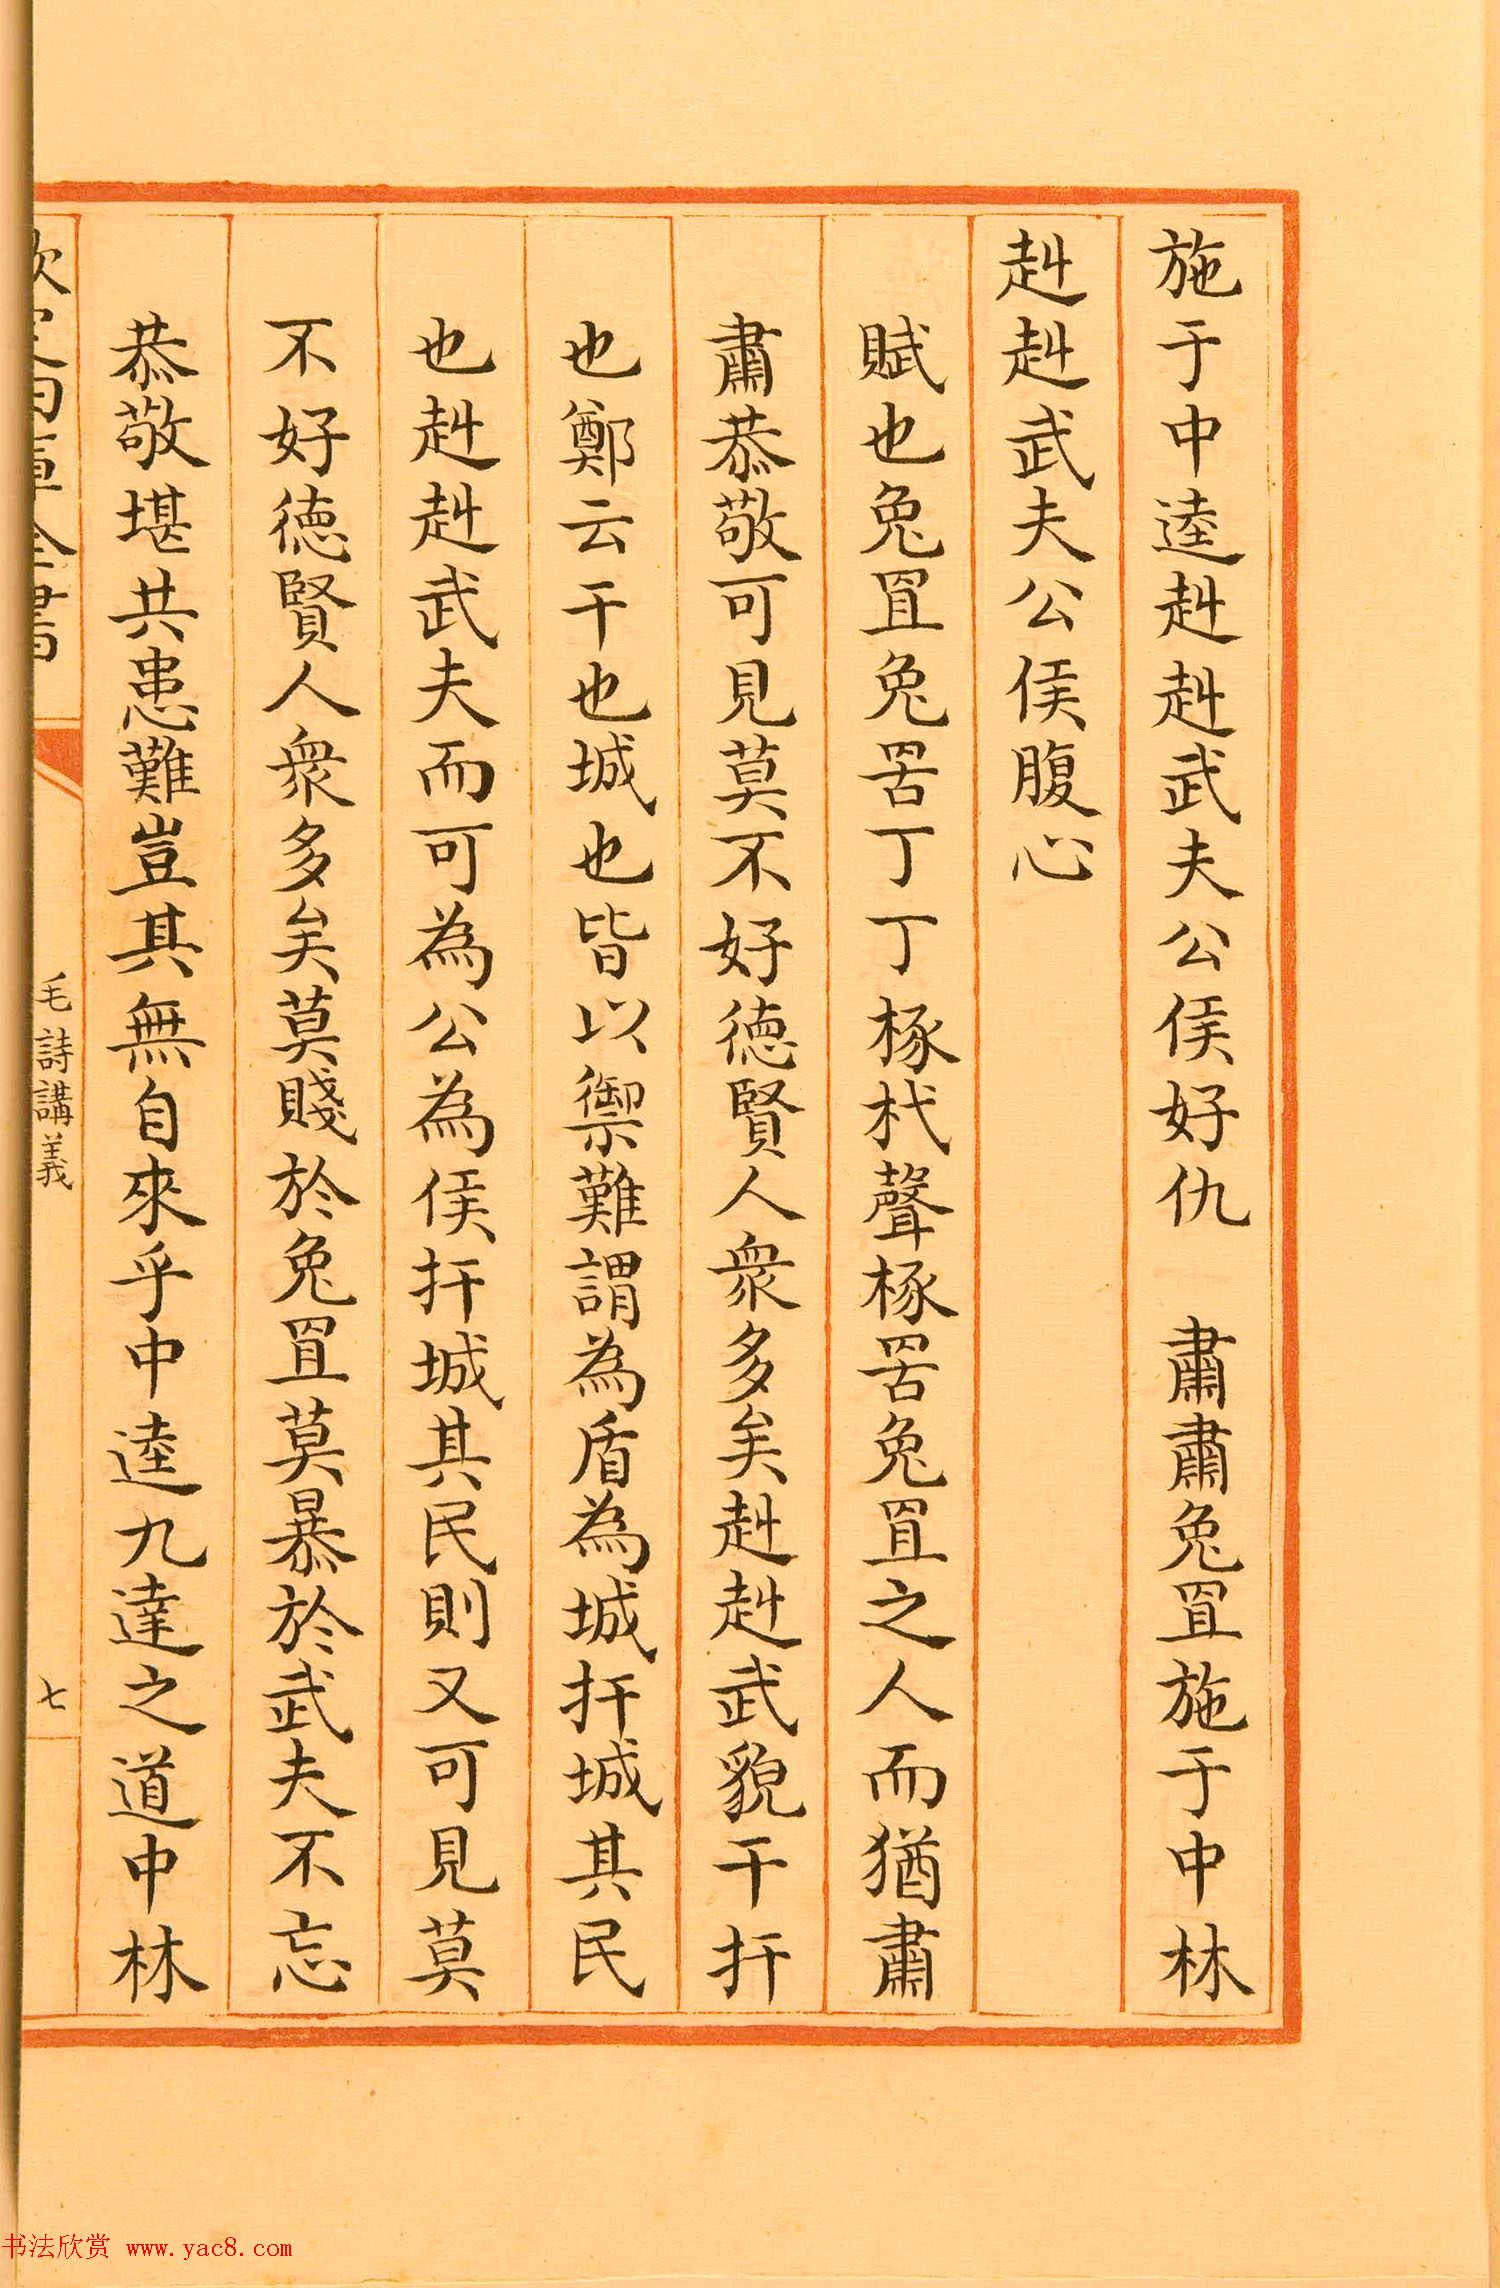 施于中逵赳赳武夫公侯好仇　肅肅兔罝施于中林
赳赳武夫公侯腹心
賦也兔罝兔罟丁丁椓杙聲椓罟兔罝之人而猶肅
肅恭敬可見莫不好德賢人衆多矣赳赳武貌干扞
也鄭云干也城也皆以禦難謂為盾為城扞城其民
也赳赳武夫而可為公為侯扞城其民則又可見莫
不好德賢人衆多矣莫賤於兔罝莫暴於武夫不忘
恭敬堪共患難豈其無自來乎中逵九達之道中林
欽定四庫全書
毛詩講義
七
书法欣赏 www.yac8.com